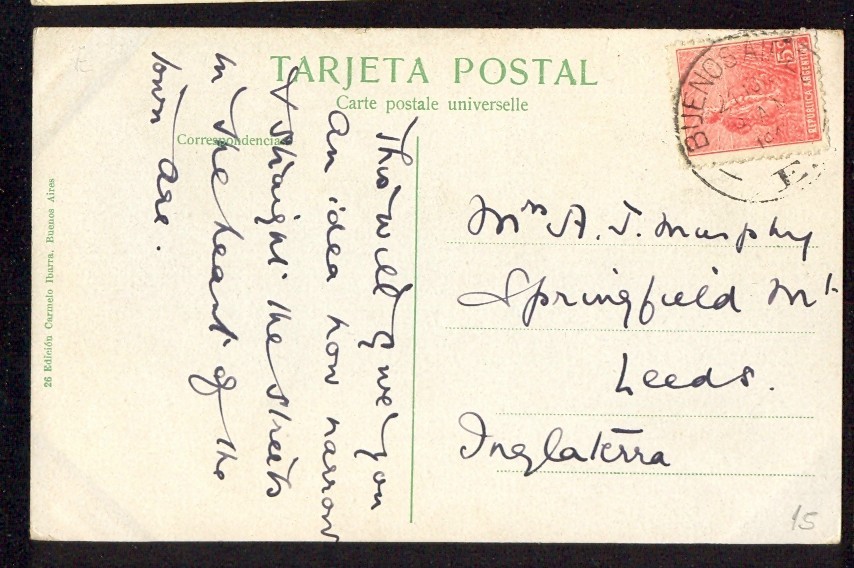 TARJETA POSTAL
Carte postale universelle
Correspondencia
This will give you
an idea how narrow
& straight the streets
in the heart of the
town are.
Mrs A. J. Murphy
Springfield Mt.
Leeds.
Inglaterra
26 Edición Carmelo Ibarra, Buenos Aires
BUENOS AIRES
5c
REPUBLICA ARGENTINA
15